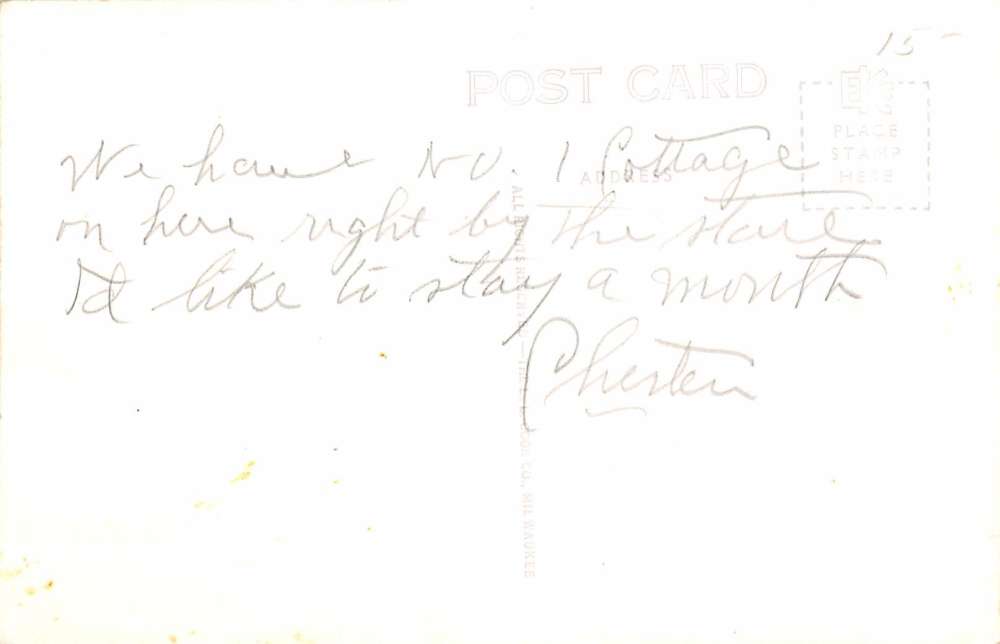 15-
POST CARD
EKC
PLACE
STAMP
HERE
ADDRESS
We have NO. 1 Cottage
on here right by the store
I'd like to stay a month
Chester
ALL RIGHTS RESERVED—THE L. L. COOK CO., MILWAUKEE